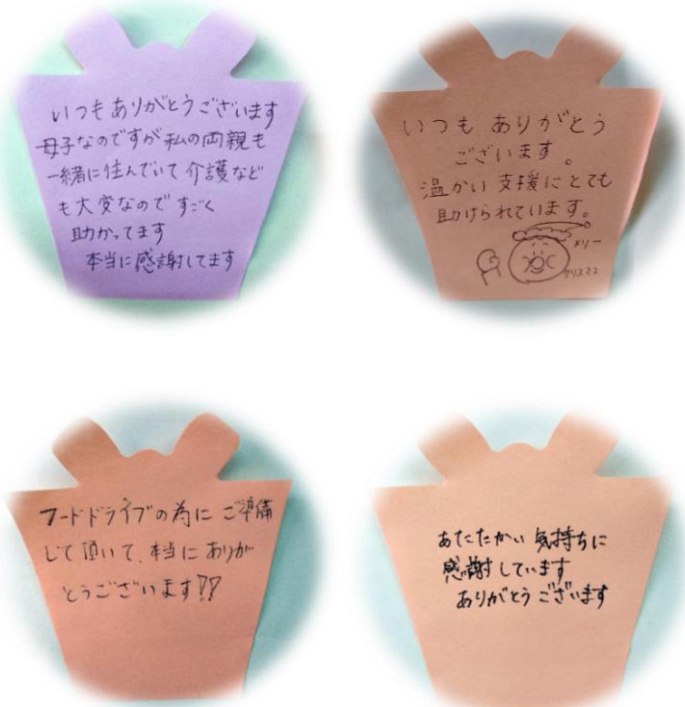 いつもありがとうございます
母子なのですが私の両親も
一緒に住んでいて介護など
も大変なのですごく
助かってます
本当に感謝してます
いつも ありがとう
ございます。
温かい支援にとても
助けられています。
メリー
クリスマス
フードドライブの為に ご準備
して頂いて、本当に ありが
とうございます!!
あたたかい 気持ちに
感謝しています
ありがとうございます